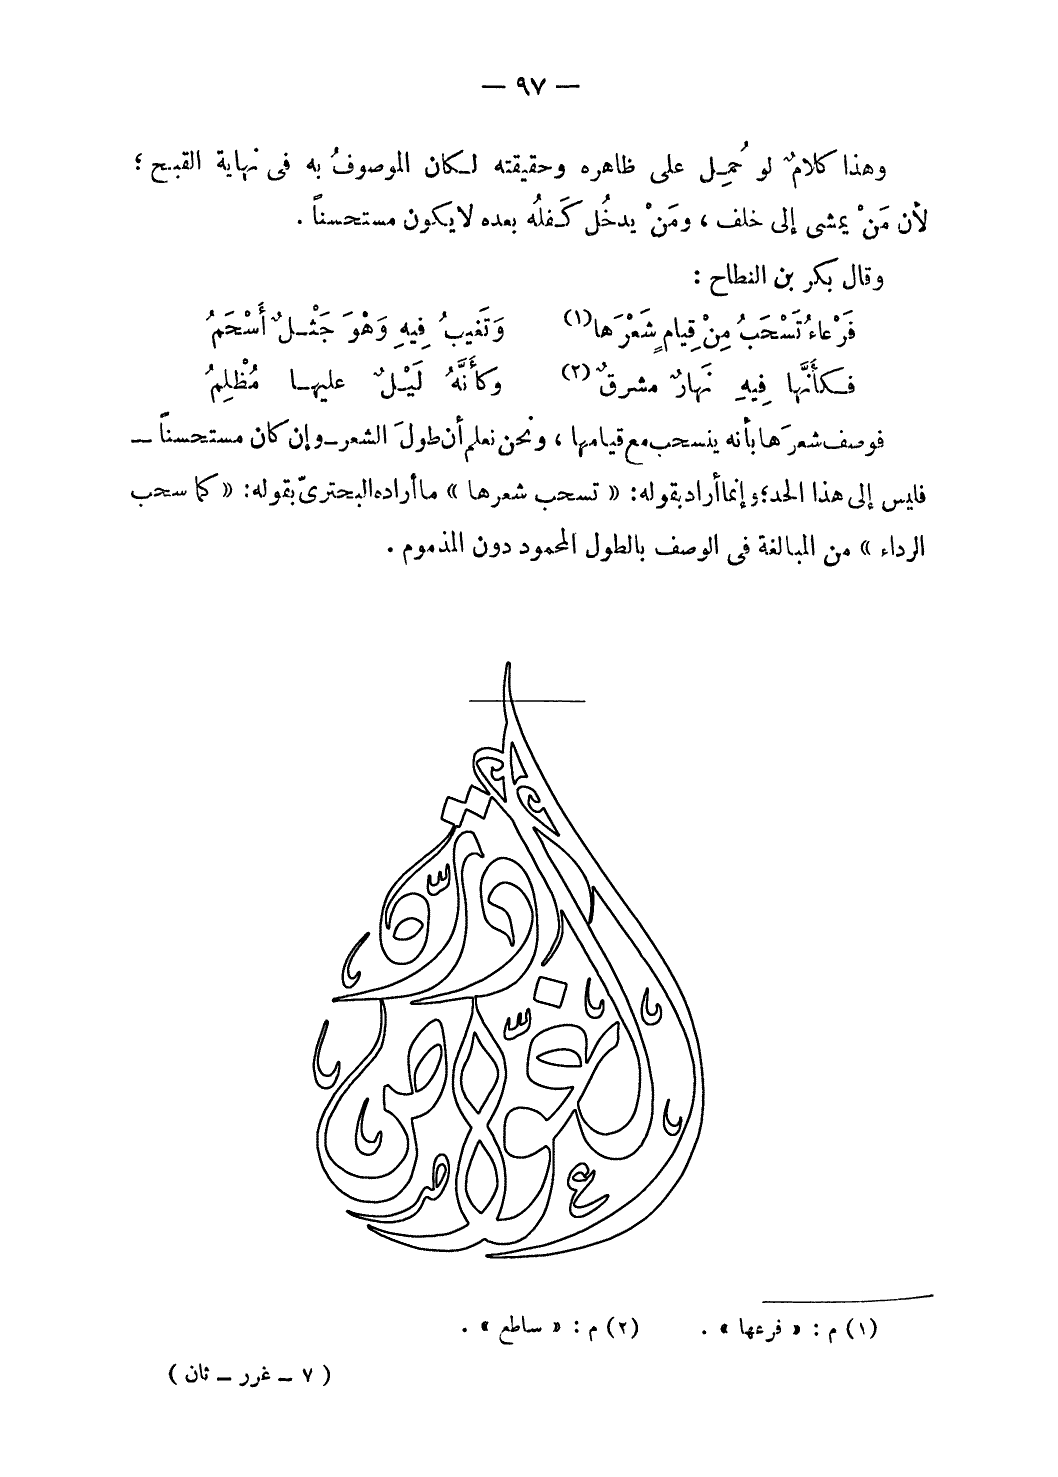 — ٩٧ —
وهذا كلامٌ لو حُمِل على ظاهره وحقيقته لكان الموصوفُ به فى نهاية القبح ؛
لأن مَنْ يمشى إلى خلف ، ومَنْ يدخُل كَفلُه بعده لا يكون مستحسناً .
وقال بكر بن النطاح :
فَرْعاءُ تَسْحَبُ مِنْ قِيامٍ شَعْرَها(١) وَتَغيبُ فِيهِ وَهْوَ جَثْلٌ أَسْحَمُ
فكأَنَّها فِيهِ نَهارٌ مشرقٌ(٢) وكأَنَّهُ لَيْلٌ عليها مُظْلِمُ
فوصف شعرَها بأنه ينسحب مع قيامها ، ونحن نعلم أن طولَ الشعر — وإن كان مستحسناً —
فليس إلى هذا الحد؛ وإنما أراد بقوله: « تسحب شعرها » ما أراده البحترىّ بقوله: « كما سحب
الرداء » من المبالغة فى الوصف بالطول المحمود دون المذموم .
الغوّاص
درّة
(١) م : « فرعها » . (٢) م : « ساطع » .
( ٧ — غرر — ثان )